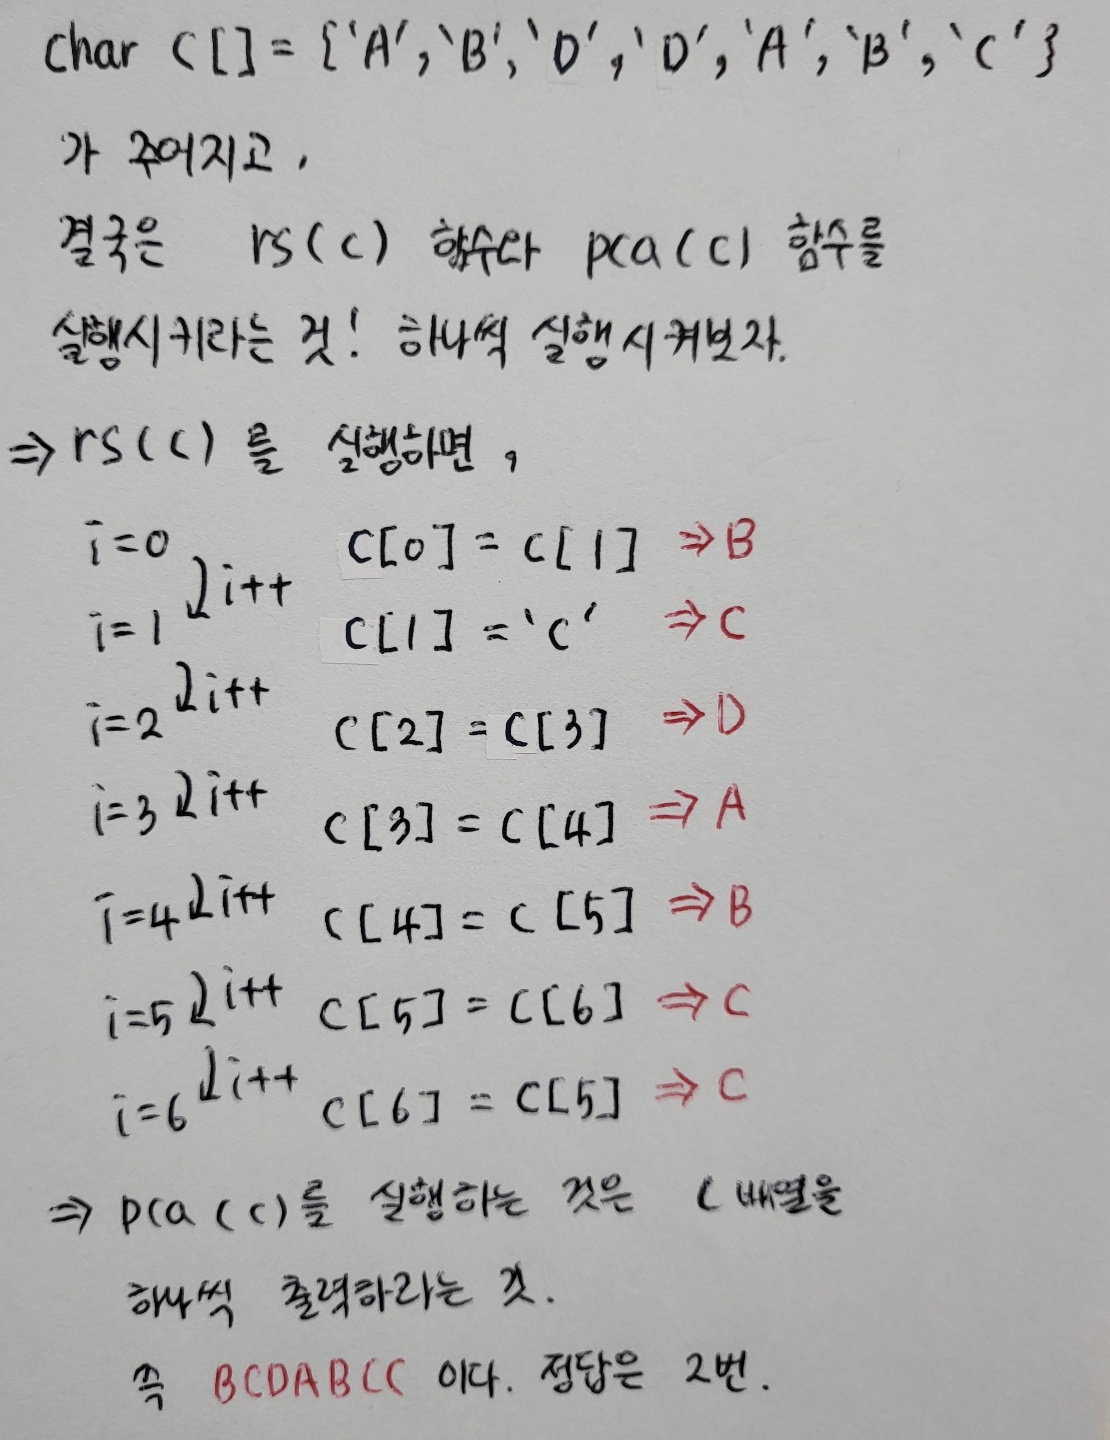 char c[] = {'A', 'B', 'D', 'D', 'A', 'B', 'C'}
가 주어지고,
결국은 rs(c) 함수와 pca(c) 함수를
실행시키라는 것! 하나씩 실행시켜보자.
⇒ rs(c)를 실행하면,
i=0 c[0] = c[1] ⇒ B
i++
i=1 c[1] = 'c' ⇒ C
i++
i=2 c[2] = c[3] ⇒ D
i++
i=3 c[3] = c[4] ⇒ A
i++
i=4 c[4] = c[5] ⇒ B
i++
i=5 c[5] = c[6] ⇒ C
i++
i=6 c[6] = c[5] ⇒ C
⇒ pca(c)를 실행하는 것은 c 배열을
하나씩 출력하라는 것.
즉 BCDABCC 이다. 정답은 2번.